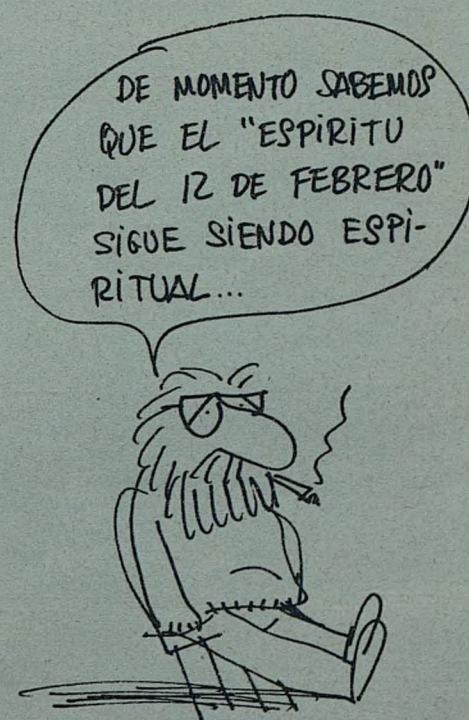 DE MOMENTO SABEMOS
QUE EL "ESPIRITU
DEL 12 DE FEBRERO"
SIGUE SIENDO ESPI-
RITUAL...